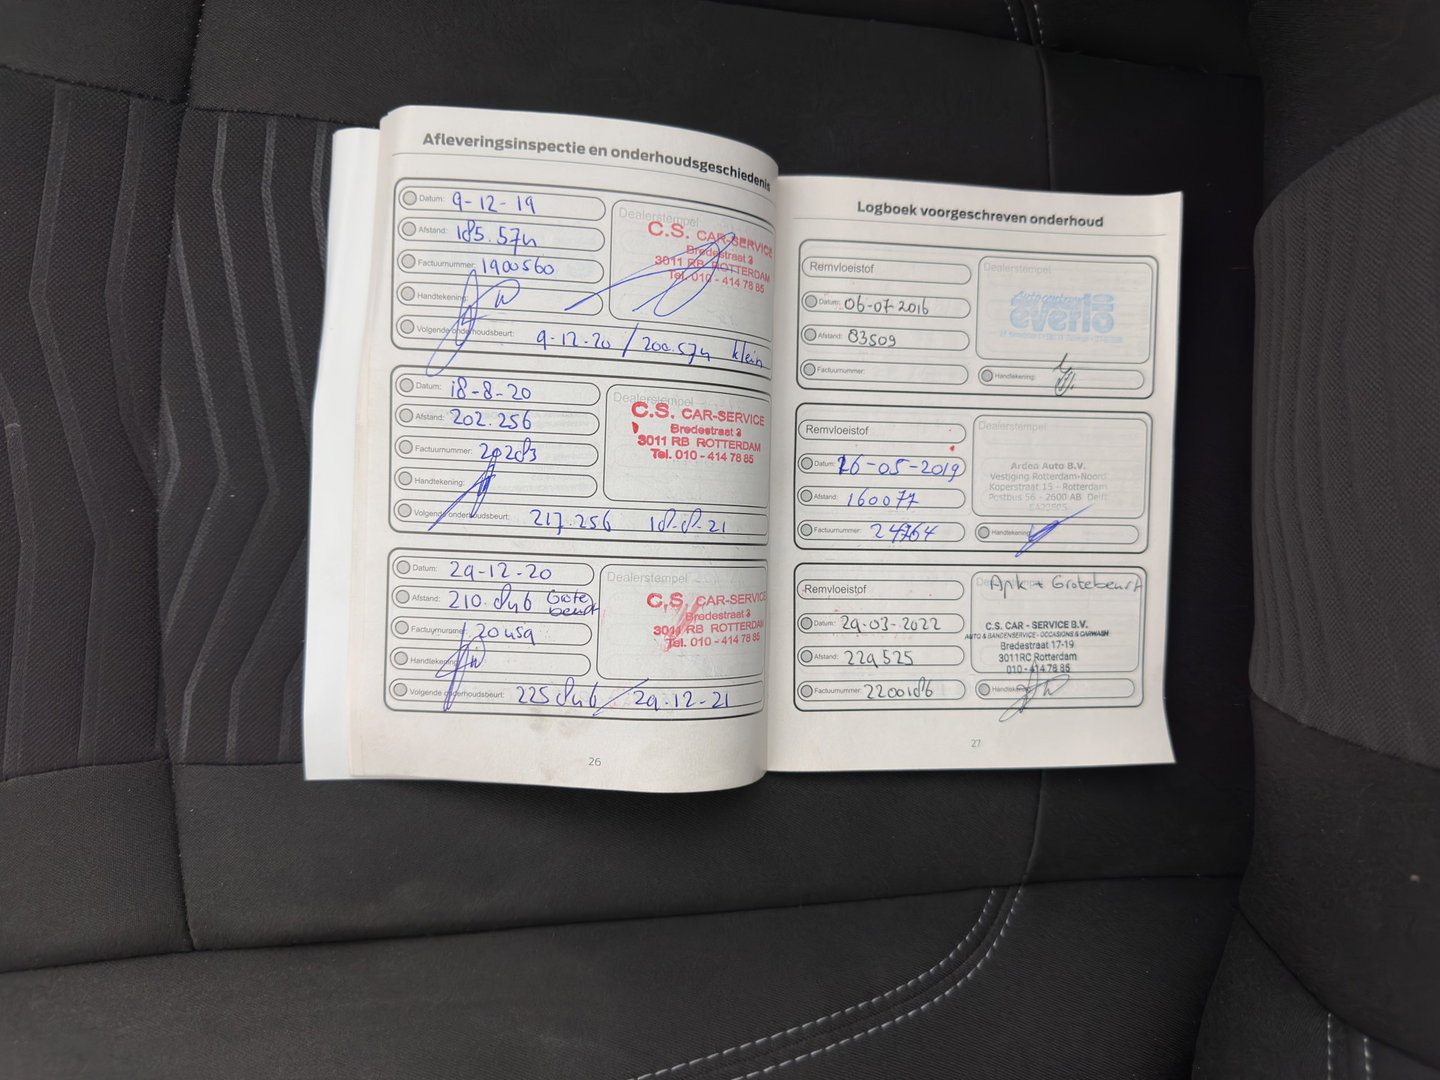 Afleveringsinspectie en onderhoudsgeschiedenis
Datum: 9-12-19
Afstand: 185.574
Factuurnummer: 1900560
Handtekening:
Volgende onderhoudsbeurt: 9-12-20 / 200.574 klein
Dealerstempel
C.S. CAR-SERVICE
Bredestraat 3
3011 RB ROTTERDAM
Tel. 010 - 414 78 85
Datum: 18-8-20
Afstand: 202.256
Factuurnummer:
Handtekening:
Volgende onderhoudsbeurt: 217.256 18-8-21
Dealerstempel
C.S. CAR-SERVICE
Bredestraat 3
3011 RB ROTTERDAM
Tel. 010 - 414 78 85
Datum: 29-12-20
Afstand: 210.846 Grote
beurt
Factuurnummer: 20459
Handtekening:
Volgende onderhoudsbeurt: 225846 / 29-12-21
Dealerstempel
C.S. CAR-SERVICE
Bredestraat 3
3011 RB ROTTERDAM
Tel. 010 - 414 78 85
26
Logboek voorgeschreven onderhoud
Remvloeistof
Datum: 06-07-2016
Afstand: 83509
Factuurnummer:
Dealerstempel
everlo
Handtekening:
Remvloeistof
Datum: 16-05-2019
Afstand: 160077
Factuurnummer: 24964
Dealerstempel
Ardea Auto B.V.
Vestiging Rotterdam-Noord
Koperstraat 15 - Rotterdam
Postbus 56 - 2600 AB Delft
Handtekening:
Remvloeistof
Datum: 29-03-2022
Afstand: 229525
Factuurnummer: 2200186
Dealerstempel
Apk + Grotebeurt
C.S. CAR - SERVICE B.V.
AUTO & BANDENSERVICE - OCCASIONS & CARWASH
Bredestraat 17-19
3011RC Rotterdam
010-414 78 85
Handtekening:
27